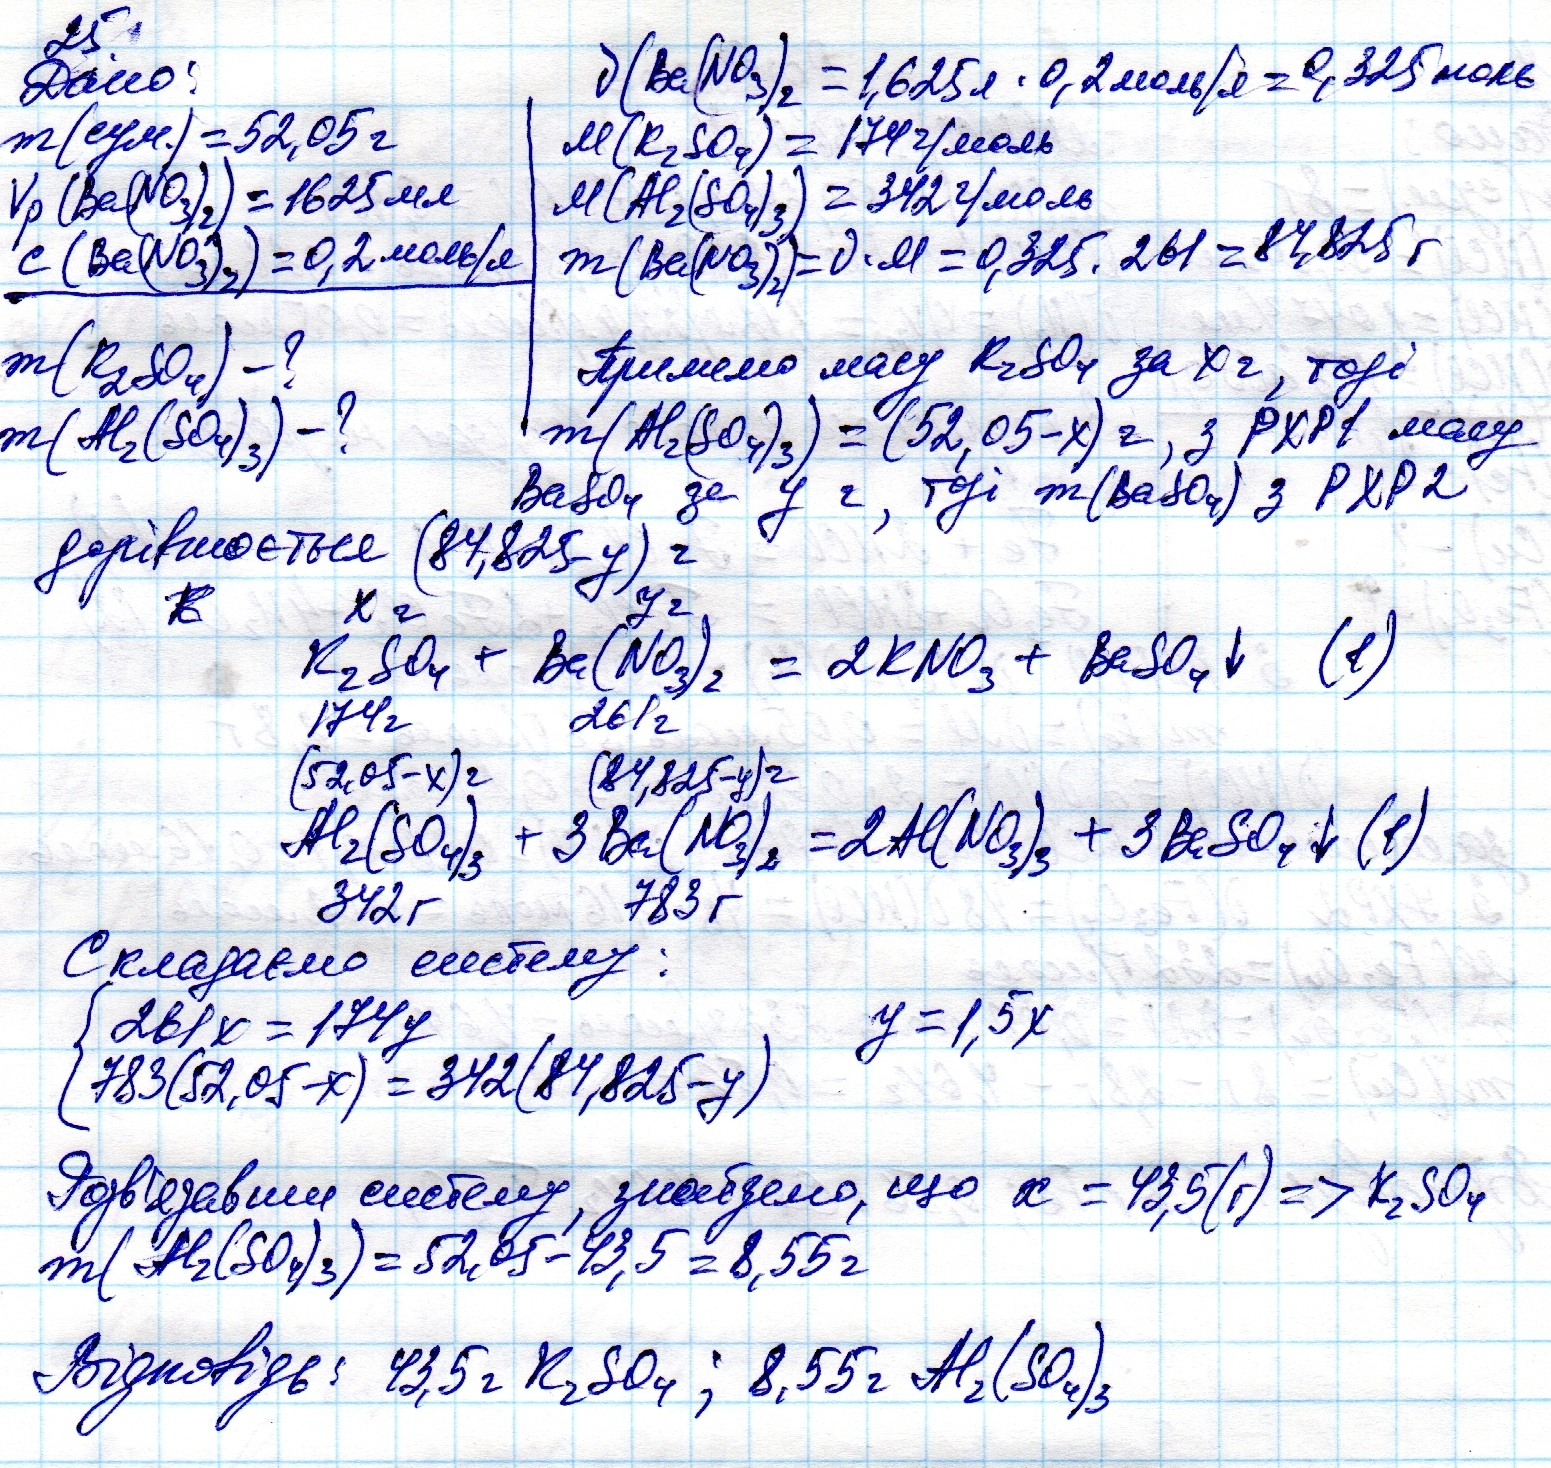 25.
Дано:
m(сум.) = 52,05 г
Vр(Ba(NO3)2) = 1625 мл
c(Ba(NO3)2) = 0,2 моль/л
m(K2SO4) - ?
m(Al2(SO4)3) - ?
ν(Ba(NO3)2 = 1,625 л · 0,2 моль/л = 0,325 моль
M(K2SO4) = 174 г/моль
M(Al2(SO4)3) = 342 г/моль
m(Ba(NO3)2) = ν · M = 0,325 · 261 = 84,825 г
Приймемо масу K2SO4 за x г, тоді
m(Al2(SO4)3) = (52,05-x) г, з РХР1 масу
BaSO4 за y г, тоді m(BaSO4) з РХР2
дорівнюється (84,825-y) г
x г y г
K2SO4 + Ba(NO3)2 = 2KNO3 + BaSO4↓ (1)
174 г 261 г
(52,05-x) г (84,825-y) г
Al2(SO4)3 + 3Ba(NO3)2 = 2Al(NO3)3 + 3BaSO4↓ (1)
342 г 783 г
Складаємо систему:
{ 261x = 174y y = 1,5x
783(52,05-x) = 342(84,825-y)
Розв'язавши систему, знайдемо, що x = 43,5(г) => K2SO4
m(Al2(SO4)3) = 52,05 - 43,5 = 8,55 г
Відповідь: 43,5 г K2SO4; 8,55 г Al2(SO4)3